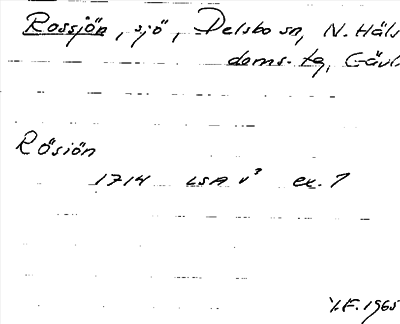 Rossjön, sjö, Delsbo sn, N. Häls
doms. tg, Gävl
Rösiön
1714 LSA v³ ex. 1
V.F. 1965